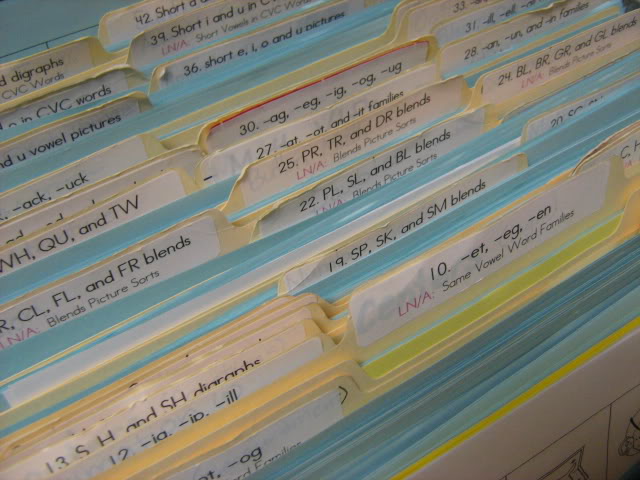 42. Short a
39. Short i and u in C
LN/A: Short Vowels in CVC Words
36. short e, i, o and u pictures
digraphs
CVC Words
in CVC words
u vowel pictures
-ack, -uck
WH, QU, and TW
CL, FL, and FR blends
LN/A: Blends Picture Sorts
33.
31. -ill, -ell,
28. -an, -un, and -in families
24. BL, BR, GR, and GL blends
LN/A: Blends Picture Sorts
30. -ag, -eg, -ig, -og, -ug
27. -at, -ot, and -it families
25. PR, TR, and DR blends
LN/A: Blends Picture Sorts
22. PL, SL, and BL blends
LN/A: Blends Picture Sorts
20.
19. SP, SK, and SM blends
10. -et, -eg, -en
LN/A: Same Vowel Word Families
13. S, H, and SH digraphs
12. -ig, -ip, -ill
-og
Families